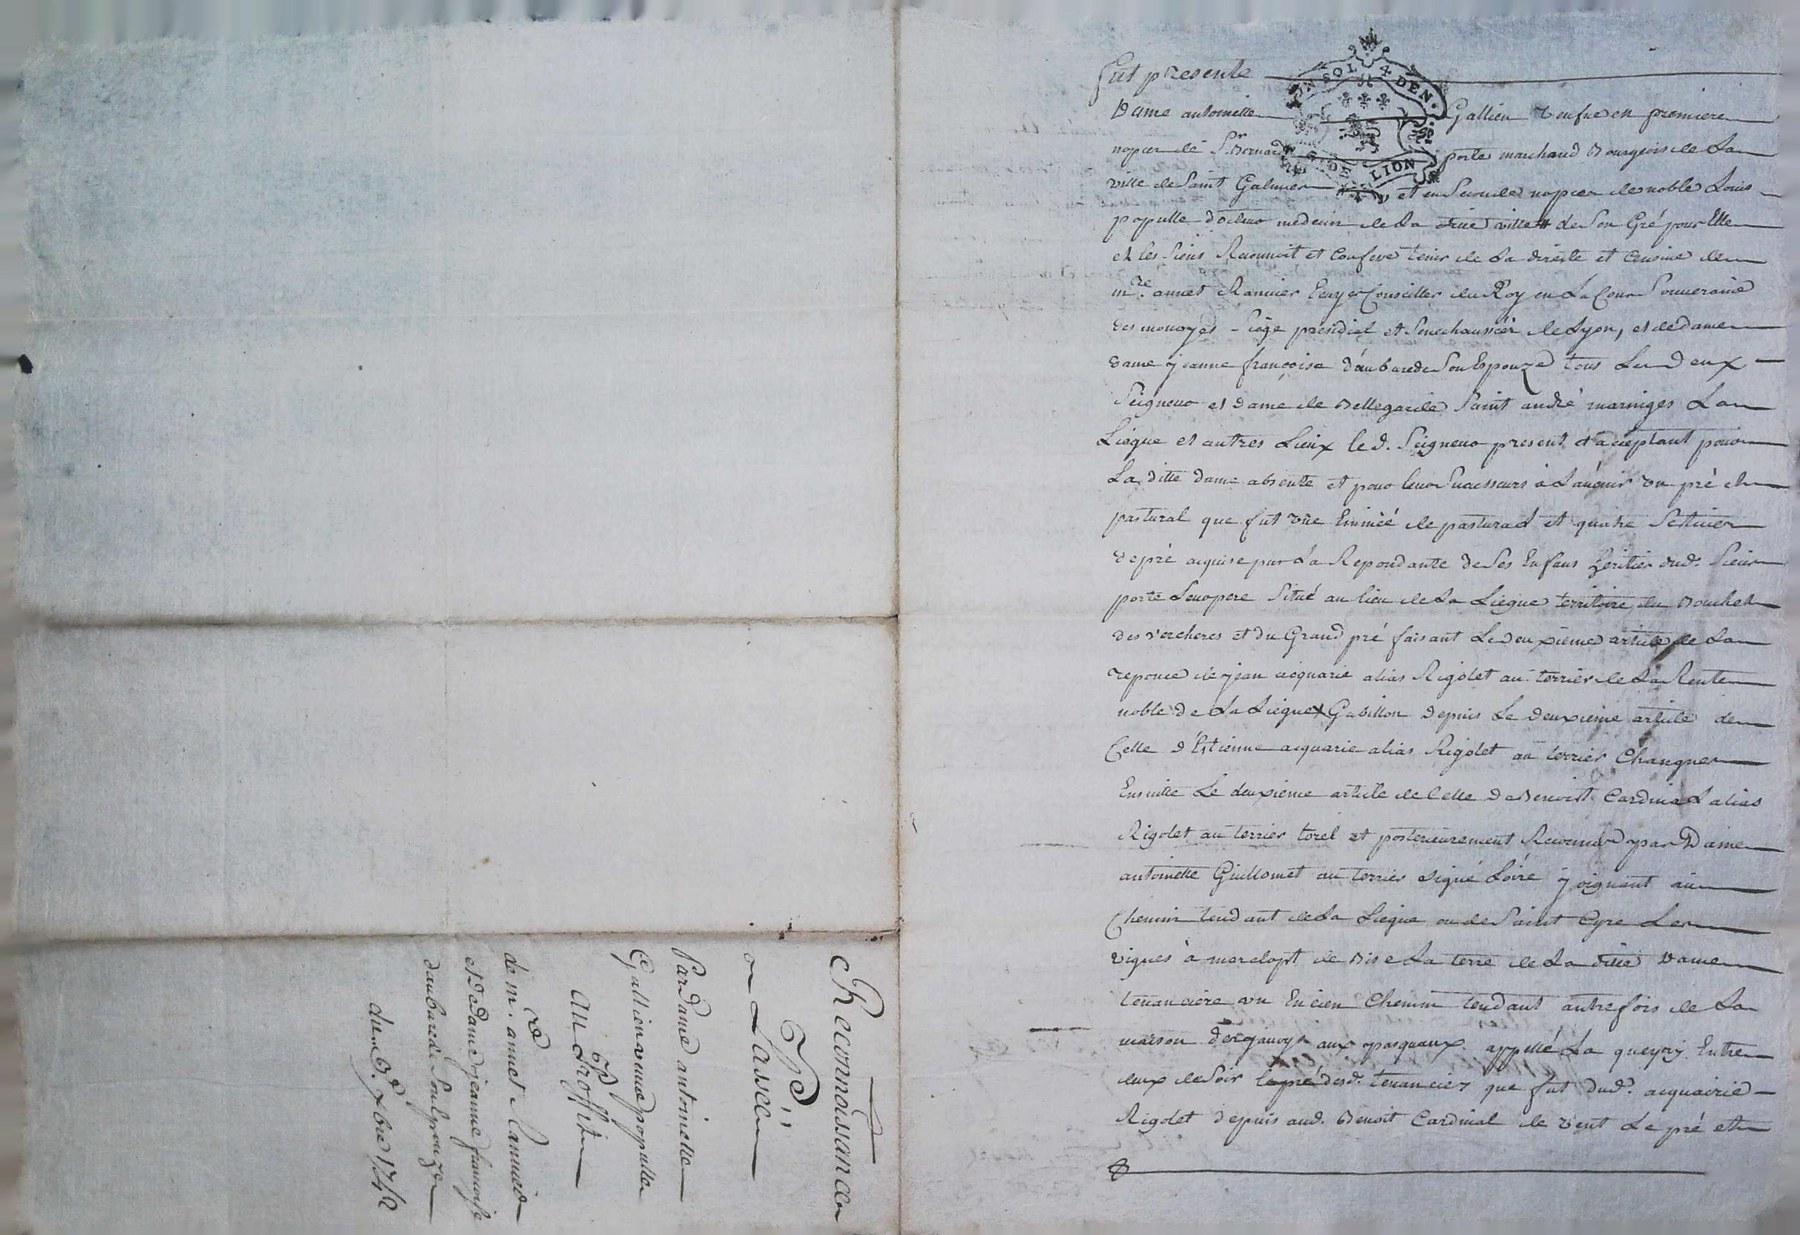 Fut presente
UN SOL 4 DEN.
G. DE LION
Dame antoinette Gallien veufve en premiere
nopces de Sr. Bernard porte marchand Bourgeois de La
ville de Saint Galmier et en Seconde nopces de noble Louis
populle docteur medecin de La ditte ville de Son Gré pour Elle
et les Siens Reconnoit et Confesse tenir de La directe et Censive de
mre. annet Ranvier Ecuyer Conseiller du Roy en La Cour Souveraine
des monoyes Siege presidial et Senechaussée de Lyon, et de dame
dame jeanne françoise d'aubarede Son Epouze tous Les Deux
Seigneur et dame de Bellegarde Saint andré maringes La
Liegue et autres Lieux le d. Seigneur present et acceptant pour
La ditte dame absente et pour leurs Successeurs à L'avenir un pré et
pastural que fut une Eminée de pasturad et quatre Sestiver
de pré acquise par La Repondante de Ses Enfans heritier dud. Sieur
porte Leur pere Situé au lieu de La Liegue territoire du Bouchet
des vercheres et du Grand pré faisant Le deuxieme article de La
reponce de jean acquarie alias Rigolet au terrier de La Rente
noble de La Liegue Gabillon depuis Le deuxieme article de
Celle d'Estienne acquarie alias Rigolet au terrier Changner
Ensuitte Le deuxieme article de Celle de Benoist Cardinal alias
Rigolet au terrier torel et posterieurement Reconnu par Dame
antoinette Guillomet au terrier Signé Loire joignant au
Chemin tendant de La Liegue ou de Saint Cyre Les
vignes à de Bise La terre de La ditte Dame
tenanciere un Encien Chemin tendant autrefois de La
maison aux pasquaux appellé La Entre
deux de Soir Le pré desd. tenancier que fut dud. acquairie
Rigolet depuis aud. Benoit Cardinal de vent Le pré et
Reconnoissance
en Lasee
Pd.
Par Dame antoinette
Gallien veuve populle
au Proffit
de mre. annet Rannier
et de dame jeanne françoise
daubarede Soulpouze
du 3.e xbre 1742